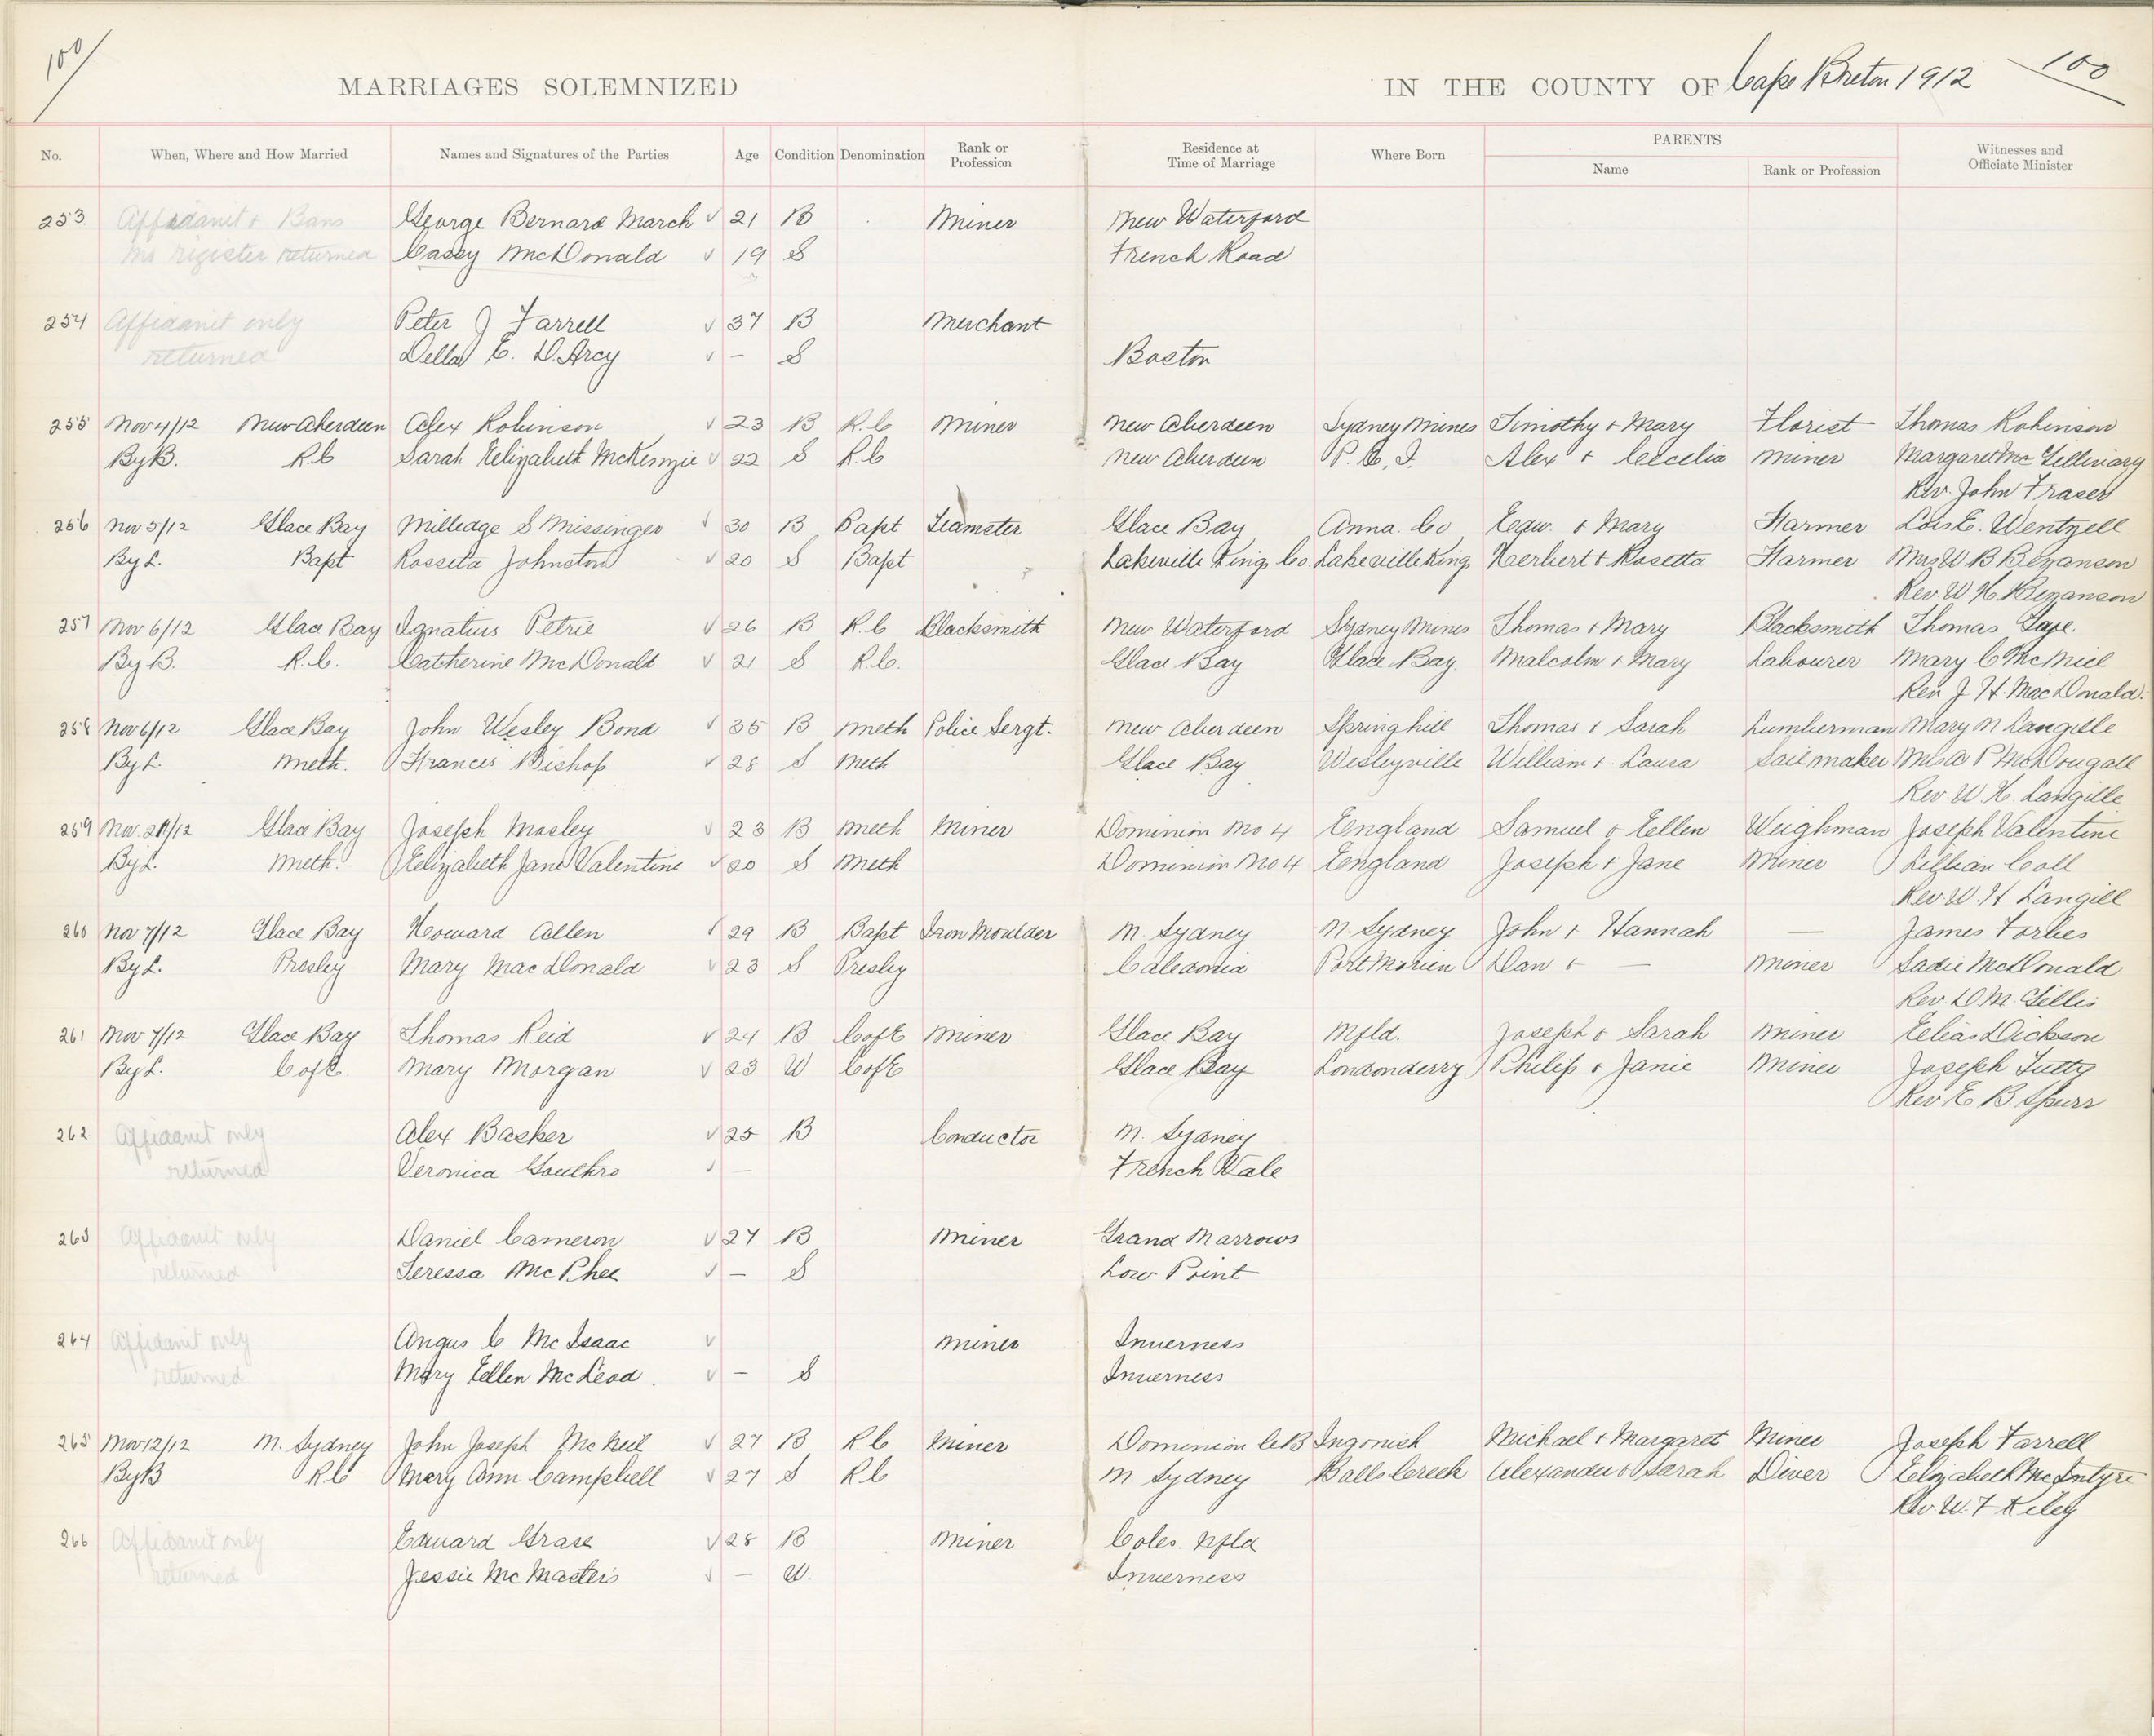 100 100
MARRIAGES SOLEMNIZED IN THE COUNTY OF Cape Breton 1912
No. When, Where and How Married Names and Signatures of the Parties Age Condition Denomination Rank or Profession Residence at Time of Marriage Where Born PARENTS Name Rank or Profession Witnesses and Officiate Minister
253 Affidavit & Bans George Bernard March 21 B Miner New Waterford
No register returned Casey McDonald 19 S French Road
254 Affidavit only Peter J Farrell 37 B Merchant
returned Della E. D'Arcy — S Boston
255 Nov 4/12 New Aberdeen Alex Robinson 23 B R.C Miner New Aberdeen Sydney Mines Timothy & Mary Florist Thomas Robinson
By B. R.C Sarah Elizabeth McKenzie 22 S R.C New Aberdeen P.E.I. Alex & Cecelia Miner Margaret McGillivary
Rev. John Fraser
256 Nov 5/12 Glace Bay Milledge S Missinger 30 B Bapt Teamster Glace Bay Anna. Co Edw. & Mary Farmer Lois E. Wentzell
By L. Bapt Rosseta Johnston 20 S Bapt Lakeville Kings Co Lakeville Kings Herbert & Rosetta Farmer Mrs W B Bezanson
Rev W H Bezanson
257 Nov 6/12 Glace Bay Ignatius Petrie 26 B R.C Blacksmith New Waterford Sydney Mines Thomas & Mary Blacksmith Thomas
By B. R.C. Catherine McDonald 21 S R.C. Glace Bay Glace Bay Malcolm & Mary Labourer Mary C McNiel
Rev J. H. MacDonald.
258 Nov 6/12 Glace Bay John Wesley Bond 35 B Meth Police Sergt. New Aberdeen Springhill Thomas & Sarah Lumberman Mary M Langille
By L. Meth. Francis Bishop 28 S Meth Glace Bay Wesleyville William & Laura Sailmaker P McDougall
Rev W. H. Langille
259 Nov. /12 Glace Bay Joseph Mosley 23 B Meth Miner Dominion No 4 England Samuel & Ellen Weighman Joseph Valentine
By L. Meth. Elizabeth Jane Valentine 20 S Meth Dominion No 4 England Joseph & Jane Miner Lillian Coll
Rev W. H Langill
260 Nov 7/12 Glace Bay Howard Allen 29 B Bapt Iron Moulder N. Sydney N. Sydney John & Hannah — James Forbes
By L. Presby Mary MacDonald 23 S Presby Caledonia Port Morien Dan & — Miner Sadie McDonald
Rev. D M. Gillis
261 Nov 7/12 Glace Bay Thomas Reid 24 B C of E Miner Glace Bay Nfld. Joseph & Sarah Miner Elias Dickson
By L. C of E. Mary Morgan 23 W C of E Glace Bay Londonderry Philip & Janie Miner Joseph Tutty
Rev E B. Spurr
262 Affidavit only Alex Basker 25 B Conductor N. Sydney
returned Veronica Gouthro — French Vale
263 Affidavit only Daniel Cameron 27 B Miner Grand Narrows
returned Teressa McPhee — S Low Point
264 Affidavit only Angus C McIsaac Miner Inverness
returned Mary Ellen McLeod. — S Inverness
265 Nov 12/12 N. Sydney John Joseph McNeil 27 B R C Miner Dominion C.B Ingonish Michael & Margaret Miner Joseph Farrell
By B R C Mary Ann Campbell 27 S R C N. Sydney Balls Creek Alexander & Sarah Diver Elizabeth McIntyre
Rev W. F Kiley
266 Affidavit only Edward Grase 28 B Miner Coles. Nfld
returned Jessie McMasters — W. Inverness